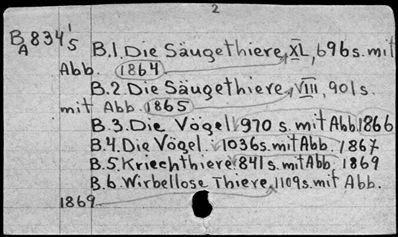 2
B 834 1/5 B.1. Die Säugethiere, XL, 696 s. mit
A
Abb. 1864
B.2. Die Säugethiere, VIII, 901 s.
mit Abb. 1865
B.3. Die Vögel 970 s. mit Abb. 1866
B.4. Die Vögel. 1036 s. mit Abb. 1867
B.5. Kriechthiere 841 s. mit Abb. 1869
B.6. Wirbellose Thiere, 1109 s. mit Abb.
1869